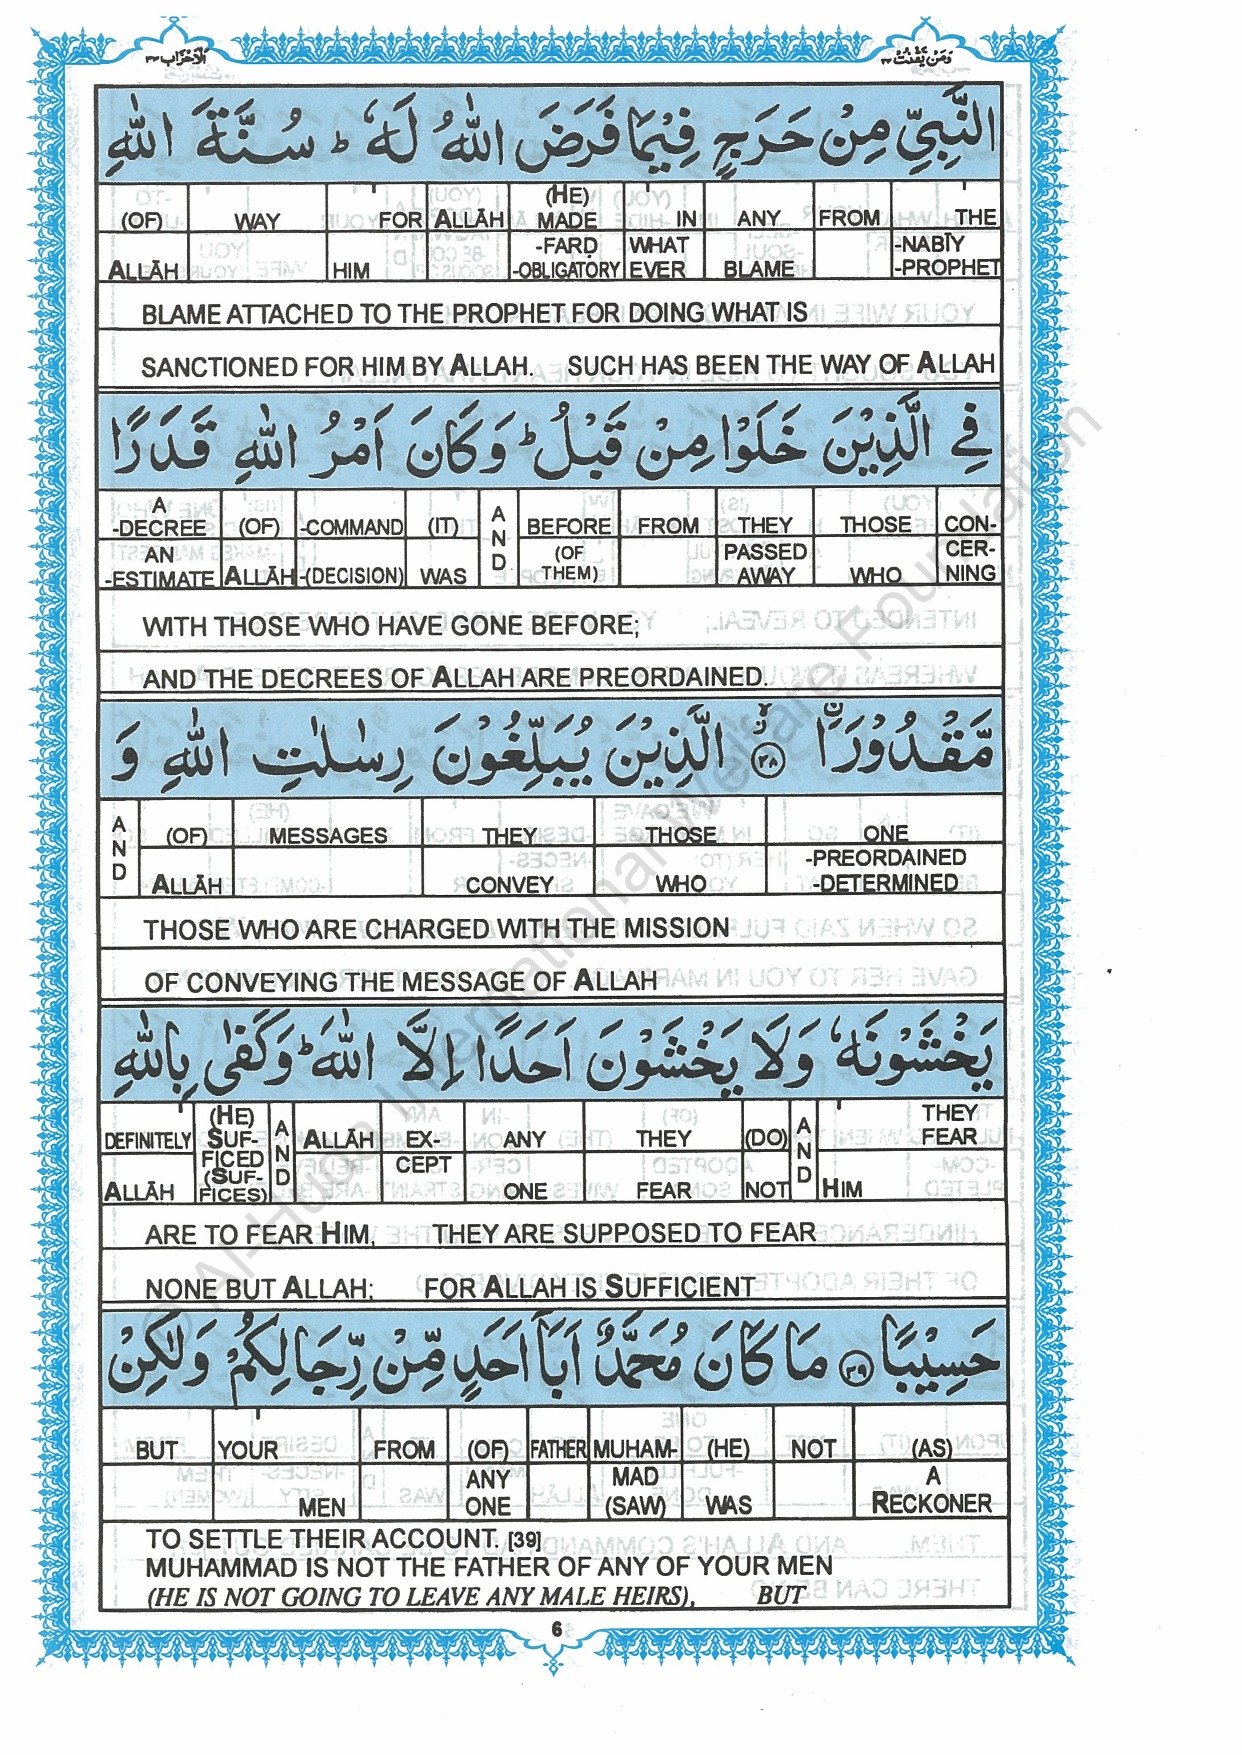 الاحزاب ٣٣
ومن يقنت ٢٢
النَّبِيِّ مِنْ حَرَجٍ فِيْمَا فَرَضَ اللّٰهُ لَهٗ ؕ سُنَّةَ اللّٰهِ
(OF) WAY FOR ALLĀH (HE) MADE IN ANY FROM THE
ALLĀH HIM -FARḌ -OBLIGATORY WHAT EVER BLAME -NABĪY -PROPHET
BLAME ATTACHED TO THE PROPHET FOR DOING WHAT IS
SANCTIONED FOR HIM BY ALLAH. SUCH HAS BEEN THE WAY OF ALLAH
فِي الَّذِيْنَ خَلَوْا مِنْ قَبْلُ ؕ وَكَانَ اَمْرُ اللّٰهِ قَدَرًا
A -DECREE (OF) -COMMAND (IT) AND BEFORE FROM THEY THOSE CON-
AN -ESTIMATE ALLĀH -(DECISION) WAS (OF THEM) PASSED AWAY WHO CER- NING
WITH THOSE WHO HAVE GONE BEFORE;
AND THE DECREES OF ALLAH ARE PREORDAINED.
مَّقْدُوْرَا ۙ ۣ ﴿۳۸﴾ الَّذِيْنَ يُبَلِّغُوْنَ رِسٰلٰتِ اللّٰهِ وَ
AND (OF) MESSAGES THEY THOSE ONE
ALLĀH CONVEY WHO -PREORDAINED -DETERMINED
THOSE WHO ARE CHARGED WITH THE MISSION
OF CONVEYING THE MESSAGE OF ALLAH
يَخْشَوْنَهٗ وَلَا يَخْشَوْنَ اَحَدًا اِلَّا اللّٰهَ ؕ وَكَفٰى بِاللّٰهِ
DEFINITELY (HE) SUF- FICED (SUF- FICES) AND ALLĀH EX- ANY THEY (DO) AND THEY FEAR
ALLĀH CEPT ONE FEAR NOT HIM
ARE TO FEAR HIM, THEY ARE SUPPOSED TO FEAR
NONE BUT ALLAH; FOR ALLAH IS SUFFICIENT
حَسِيْبًا ﴿۳۹﴾ مَا كَانَ مُحَمَّدٌ اَبَآ اَحَدٍ مِّنْ رِّجَالِكُمْ وَلٰكِنْ
BUT YOUR FROM (OF) FATHER MUHAM- (HE) NOT (AS)
MEN ANY ONE MAD (SAW) WAS A RECKONER
TO SETTLE THEIR ACCOUNT. [39]
MUHAMMAD IS NOT THE FATHER OF ANY OF YOUR MEN
(HE IS NOT GOING TO LEAVE ANY MALE HEIRS), BUT
6
© Al-Huda International Welfare Foundation